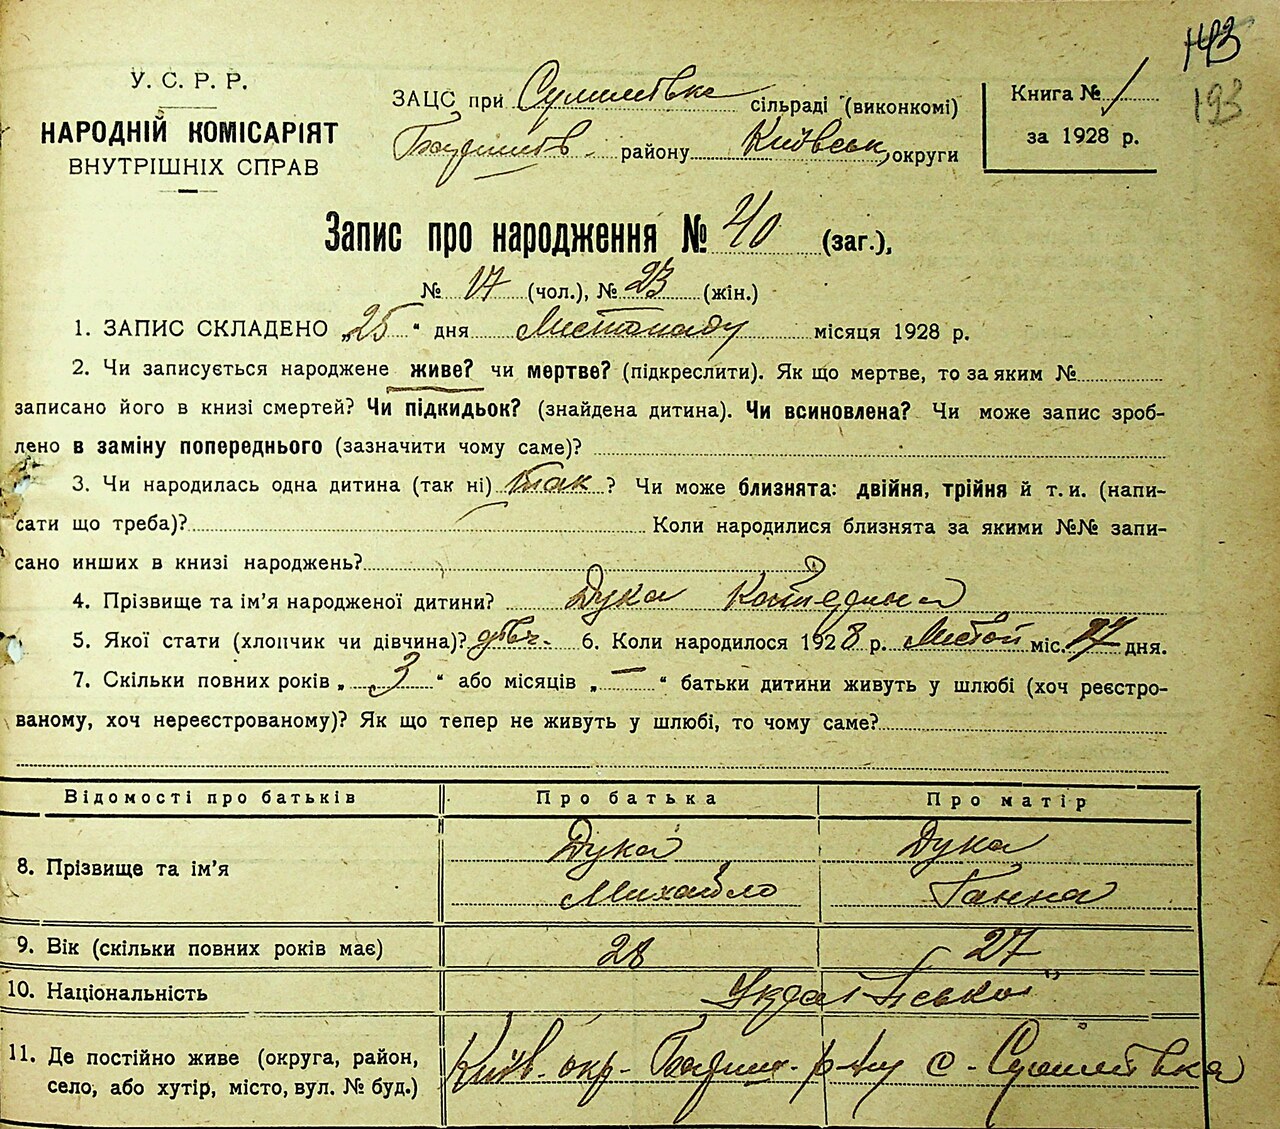 143
193
У. С. Р. Р.
НАРОДНІЙ КОМІСАРІЯТ
ВНУТРІШНІХ СПРАВ
ЗАЦС при Сулимівка сільраді (виконкомі)
Баришів. району Київськ. округи
Книга № 1
за 1928 р.
Запис про народження № 40 (заг.),
№ 17 (чол.), № 23 (жін.)
1. ЗАПИС СКЛАДЕНО „25" дня Листопаду місяця 1928 р.
2. Чи записується народжене живе? чи мертве? (підкреслити). Як що мертве, то за яким №
записано його в книзі смертей? Чи підкидьок? (знайдена дитина). Чи всиновлена? Чи може запис зроб-
лено в заміну попереднього (зазначити чому саме)?
3. Чи народилась одна дитина (так ні) так ? Чи може близнята: двійня, трійня й т. и. (напи-
сати що треба)? Коли народилися близнята за якими №№ запи-
сано инших в книзі народжень?
4. Прізвище та ім'я народженої дитини? Дука
5. Якої статі (хлопчик чи дівчина)? дівч. 6. Коли народилося 1928 р. Листоп міс. дня.
7. Скільки повних років „ 3 " або місяців „ — " батьки дитини живуть у шлюбі (хоч реєстро-
ваному, хоч нереєстрованому)? Як що тепер не живуть у шлюбі, то чому саме?
Відомості про батьків Про батька Про матір
8. Прізвище та ім'я Дука Михайло Дука Ганна
9. Вік (скільки повних років має) 28 27
10. Національність Української
11. Де постійно живе (округа, район, село, або хутір, місто, вул. № буд.) Київ. окр. Бариш. р-ну с. Сулимівка